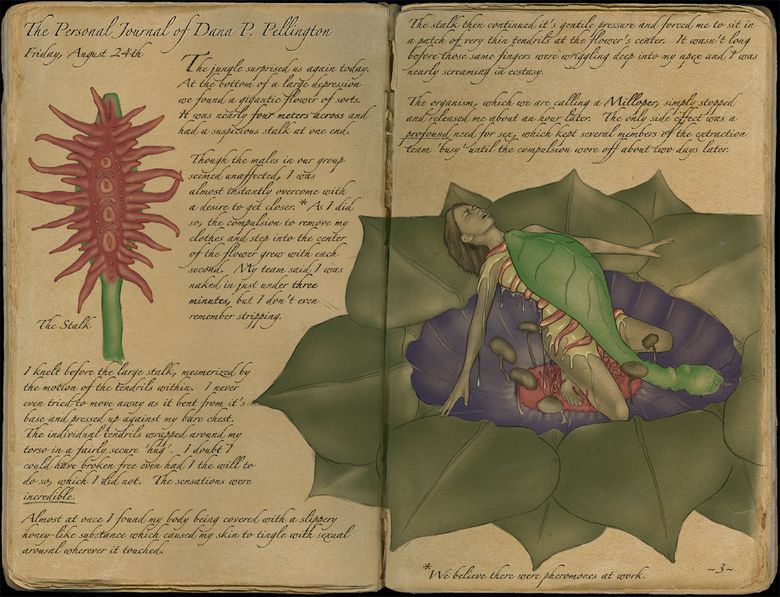 The Personal Journal of Dana P. Pellington
Friday, August 24th
The jungle surprised us again today.
At the bottom of a large depression
we found a gigantic flower of sorts.
It was nearly four meters across and
had a suspicious stalk at one end.
Though the males in our group
seemed unaffected, I was
almost instantly overcome with
a desire to get closer.* As I did
so, the compulsion to remove my
clothes and step into the center
of the flower grew with each
second. My team said I was
naked in just under three
minutes, but I don't even
remember stripping.
The Stalk
I knelt before the large stalk, mesmerized by
the motion of the tendrils within. I never
even tried to move away as it bent from it's
base and pressed up against my bare chest.
The individual tendrils wrapped around my
torso in a fairly secure 'hug'. I doubt I
could have broken free even had I the will to
do so, which I did not. The sensations were
incredible.
Almost at once I found my body being covered with a slippery
honey-like substance which caused my skin to tingle with sexual
arousal wherever it touched.
The stalk then continued it's gentle pressure and forced me to sit in
a patch of very thin tendrils at the flower's center. It wasn't long
before those same fingers were wriggling deep into my apex and I was
nearly screaming in ecstasy.
The organism, which we are calling a Milloper, simply stopped
and released me about an hour later. The only side effect was a
profound need for sex, which kept several members of the extraction
team 'busy' until the compulsion wore off about two days later.
*We believe there were pheromones at work.
~3~